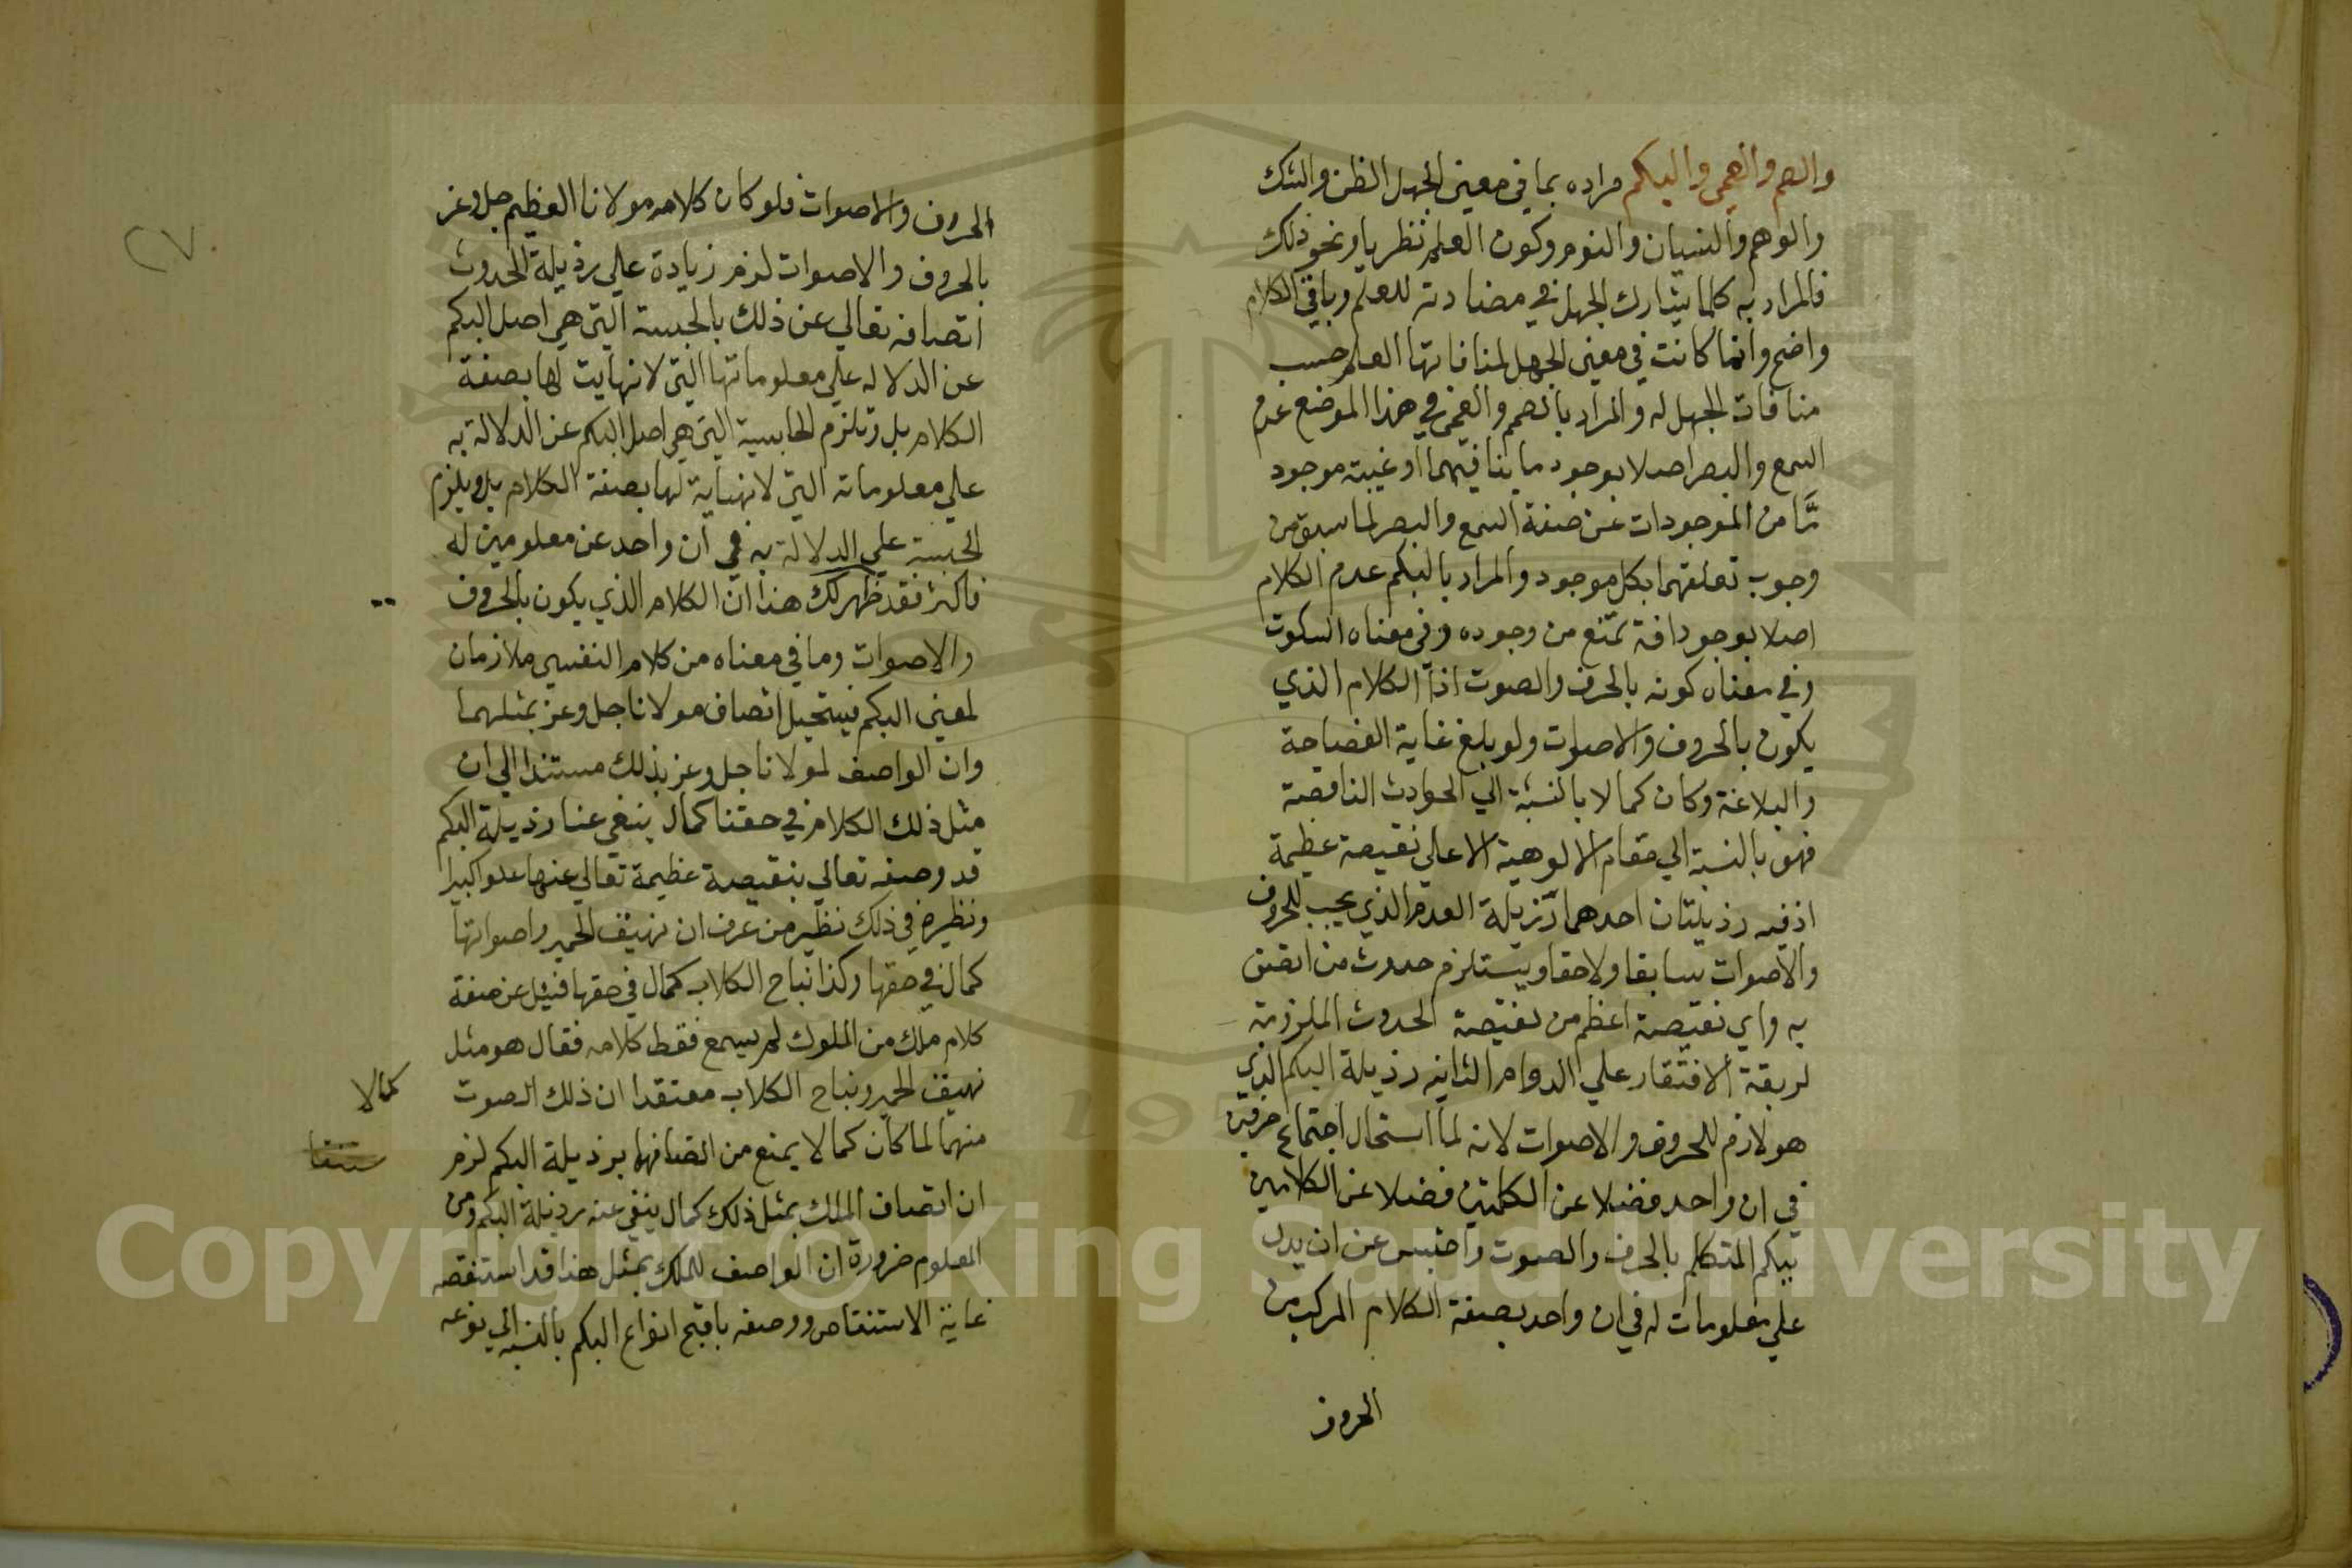 والصم والعمى والبكم مراده بما في معنى الجهل الظن والشك
والوهم والنسيان والنوم وكون العلم نظريا ونحو ذلك
فالمراد به كلما يشارك الجهل في مضادته للعلم وباقي الكلام
واضح وانما كانت في معنى الجهل لمنافاتها العلم حسب
منافات الجهل له والمراد بالصمم والعمى في هذا الموضع عدم
السمع والبصر اصلا بوجود ما ينافيهما او غيبته موجود
مّا من الموجودات عن صفة السمع والبصر لما سبق من
وجوب تعلقهما بكل موجود والمراد بالبكم عدم الكلام
اصلا بوجود افة تمنع من وجوده وفي معناه السكوت
وفي معناه كونه بالحرف والصوت اذا الكلام الذي
يكون بالحروف والاصوات ولو بلغ غاية الفصاحة
والبلاغة وكان كمالا بالنسبة الي الحوادث الناقصة
فهو بالنسبة الي مقام الالوهية الاعلى نقيصة عظيمة
اذ فيه رذيلتان احدهما رذيلة العدم الذي يجب للحروف
والاصوات سابقا ولاحقا ويستلزم حدوث من اتصف
به واي نقيصة اعظم من نقيصة الحدوث الملزومة
لربقة الافتقار علي الدوام الثانيه رذيلة البكم الذي
هو لازم للحروف والاصوات لانه لما استحال اجتماع حرفين
في ان واحد فضلا عن الكلمتين فضلا عن الكلامين
بيكم المتكلم بالحرف والصوت واحتبس عن ان يدل
علي معلومات له في ان واحد بصفة الكلام المركب من
الحروف
٢٧
الحروف والاصوات فلو كان كلامه مولانا العظيم جل وعز
بالحروف والاصوات لزم زيادة علي رذيلة الحدوث
اتصافه تعالي عن ذلك بالحبسة التي هي اصل البكم
عن الدلاله علي معلوماتها التي لا نهايت لها بصفة
الكلام بل وتلزم الحابسية التي هي اصل البكم عن الدلالة به
علي معلوماته التي لا نهاية لها بصفة الكلام بل ويلزم
الحبسة علي الدلالة به في ان واحد عن معلومين له
فاكثر فقد ظهر لك هذا ان الكلام الذي يكون بالحروف
والاصوات وما في معناه من كلام النفسي ملازمان
لمعنى البكم فيستحيل اتصاف مولانا جل وعز بمثلهما
وان الواصف لمولانا جل وعز بذلك مستندا الي ان
مثل ذلك الكلام في حقنا كمال ينفي عنا رذيلة البكم
قد وصفه تعالي بنقيصة عظيمة تعالي عنها علوا كبيرا
ونظيره في ذلك نظير من عرف ان نهيق الحمير واصواتها
كمال في حقها وكذا نباح الكلاب كمال في حقها فسئل عن صفة
كلام ملك من الملوك لم يسمع فقط كلامه فقال هو مثل
نهيق الحمير ونباح الكلاب معتقدا ان ذلك الصوت
كمالا
منهما لما كان كمالا يمنع من اتصافها برذيلة البكم لزم
ان اتصاف الملك بمثل ذلك كمال ينفي عنه رذيلة البكم ومن
المعلوم ضرورة ان الواصف للملك بمثل هذا قد استنقصه
غاية الاستنقاص ووصفه باقبح انواع البكم بالنسبة الي نوعه
Copyright © King Saud University